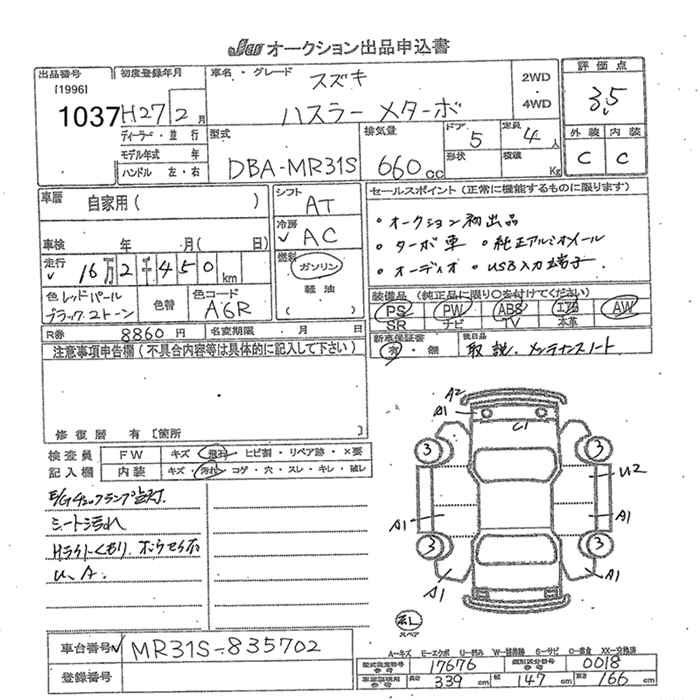 Jaa オークション出品申込書
出品番号 [1996] 1037
初度登録年月 H27 2月
車名・グレード スズキ ハスラー Xターボ
2WD・4WD
評価点 3.5
ディーラー・並 行
モデル年式 年
ハンドル 左・右
型式 DBA-MR31S
排気量 660cc
ドア 5
形状
定員 4人
積載 Kg
外装 C
内装 C
車歴 自家用( )
シフト AT
セールスポイント(正常に機能するものに限ります)
・オークション初出品
・ターボ車 ・純正アルミホイール
・オーディオ・USB入力端子
車検 年 月( 日)
冷房 AC
走行 16万2千450km
燃料 ガソリン
軽油
色 レッドパール
ブラック2トーン
色替
色コード A6R
装備品(純正品に限り○を付けてください)
PS PW ABS エアB AW
SR ナビ TV 本革
R券 8860円
名変期限 月 日
新車保証書 有・無
後日品 取説、メンテナンスノート
注意事項申告欄(不具合内容等は具体的に記入して下さい)
修復歴 有[箇所
検査員記入欄
FW キズ・飛石・ヒビ割・リペア跡・×要
内装 キズ・汚れ・コゲ・穴・スレ・キレ・破レ
E/Gチェックランプ点灯
シート汚れ
Hライトくもり
U、A
A2
A1
C1
3
3
U2
A1
A1
3
3
A1
A1
スペア
車台番号 MR31S-835702
登録番号
A-キズ E-エクボ U-凹み W-補修跡 S-サビ C-腐食 XX-交換済
型式指定番号 17676
類別区分番号 0018
長さ 339cm 幅 147cm 高さ 166cm